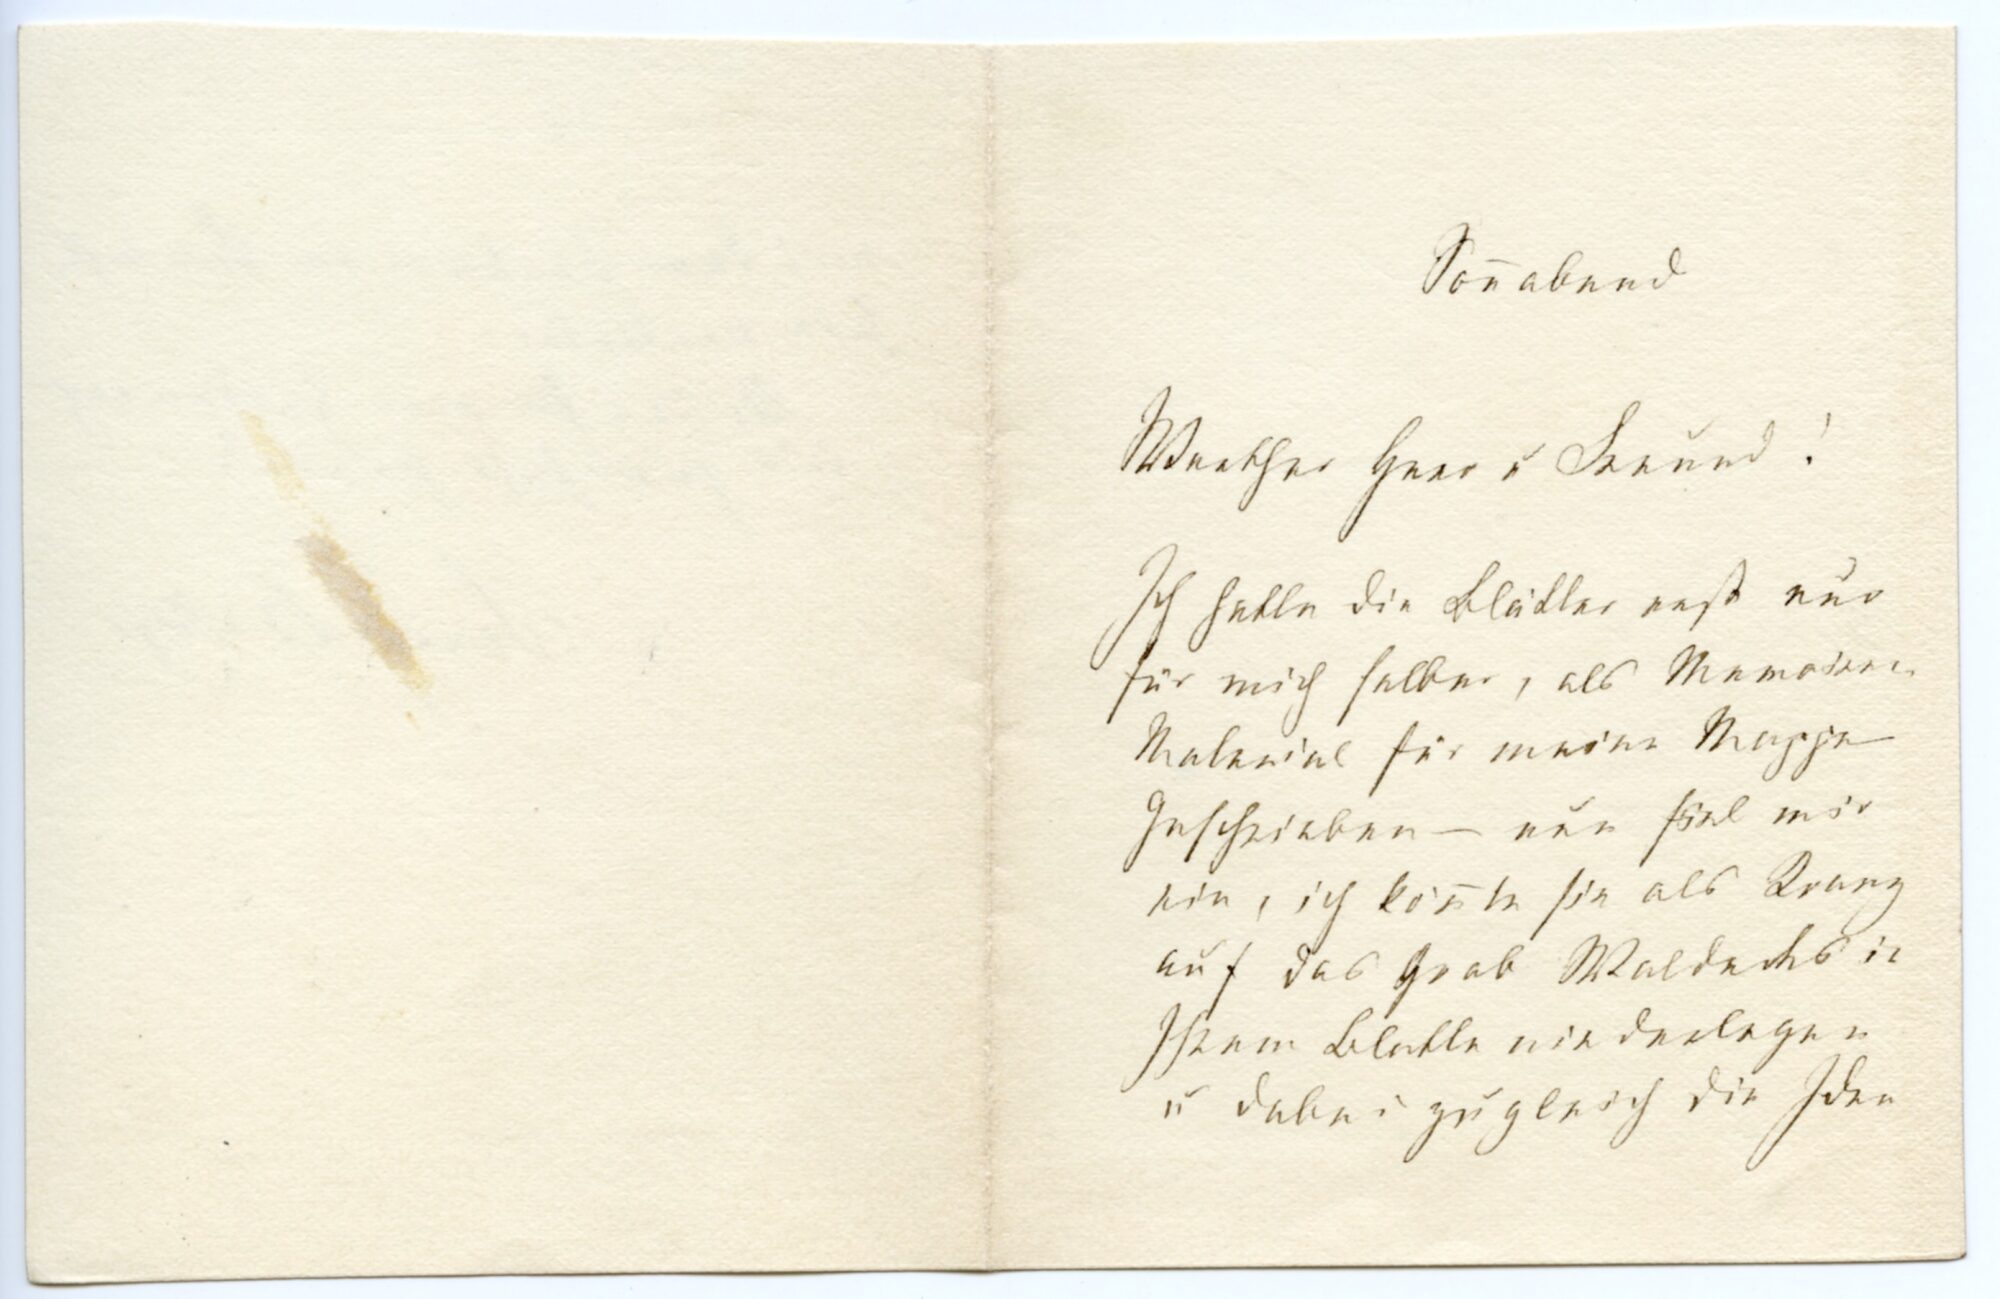 Soñabend
Werther Herr u Freund!
Ich hatte die Blätter erst nur
für mich selber, als Memoiren-
Material für meine Mappe
geschrieben — nun fiel mir
ein, ich köñte sie als Kranz
auf das Grab Waldecks in
Ihrem Blatte niederlegen
u dabei zugleich die Idee